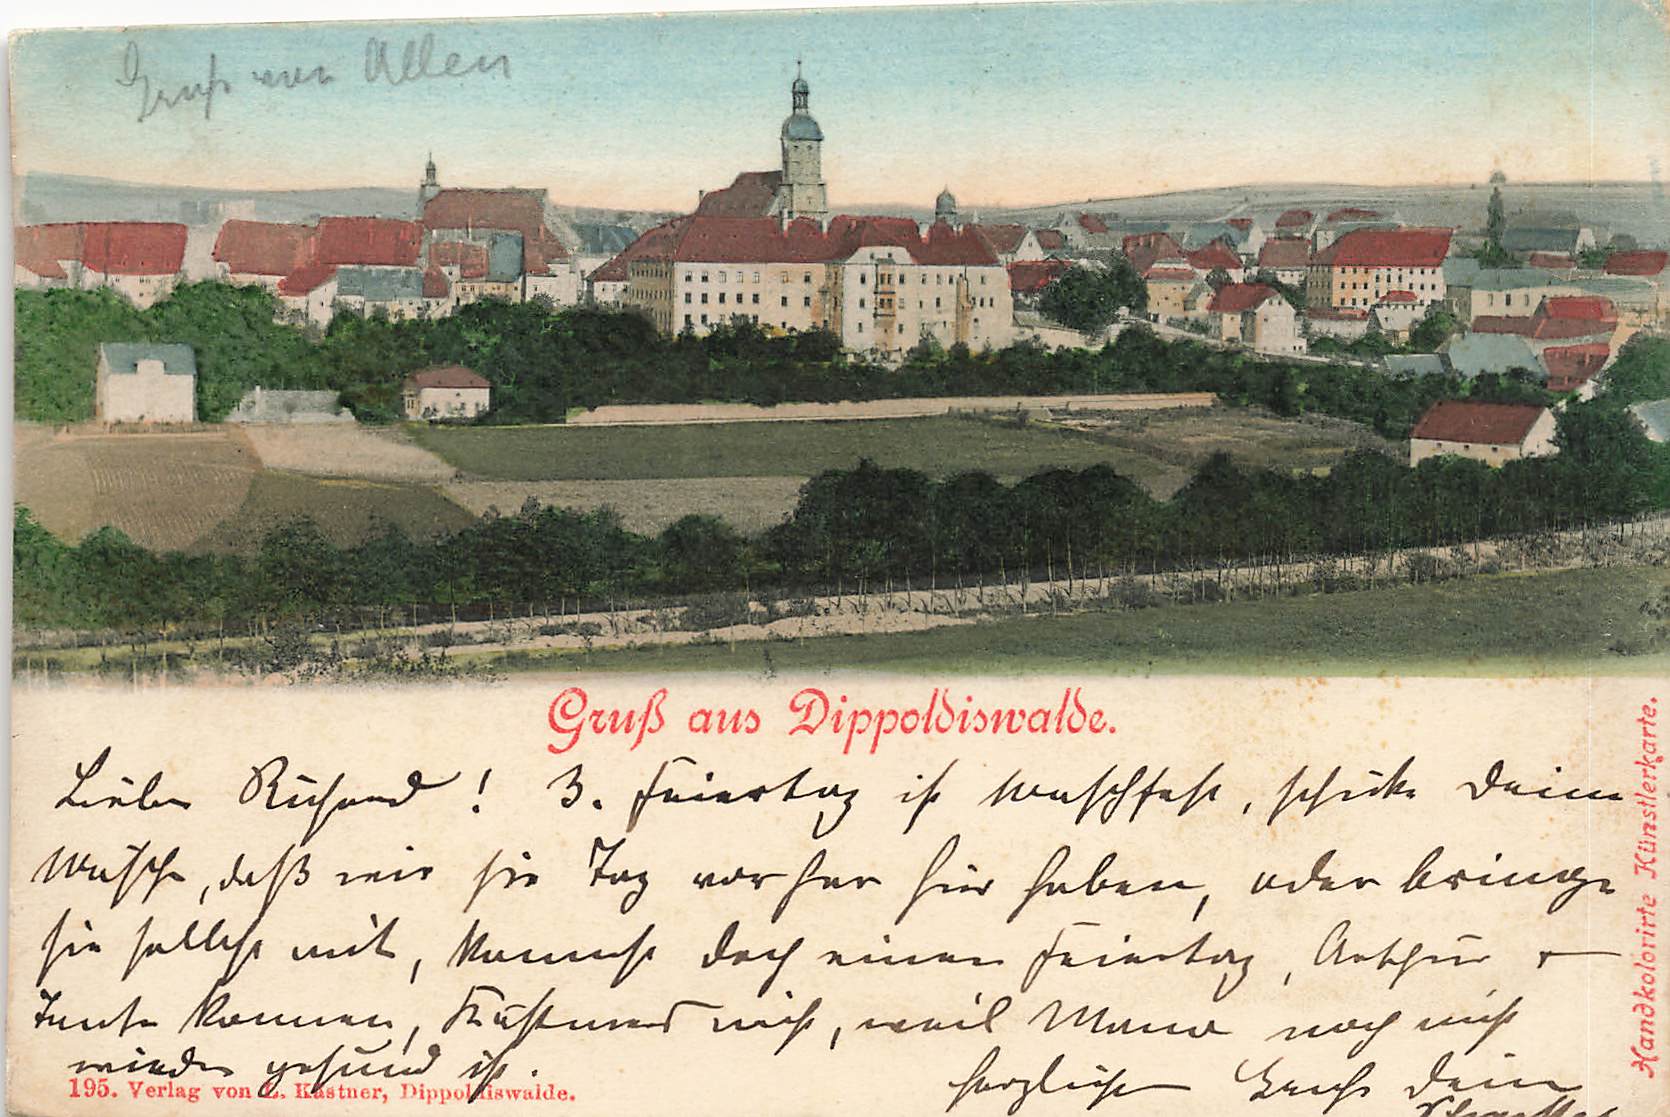 Gruß von Allen
Gruß aus Dippoldiswalde.
Lieber Richard! 3. Feiertag ist Waschfest, schicke Deine
Wäsche, daß wir sie Tag vorher hier haben, oder bringe
sie selbst mit, kommst doch einen Feiertag, Arthur &
Tante kommen, nicht, weil Mama noch nicht
wieder gesund ist.
herzlichen Gruß Dein
195. Verlag von L. Kästner, Dippoldiswalde.
Handkolorirte Künstlerkarte.